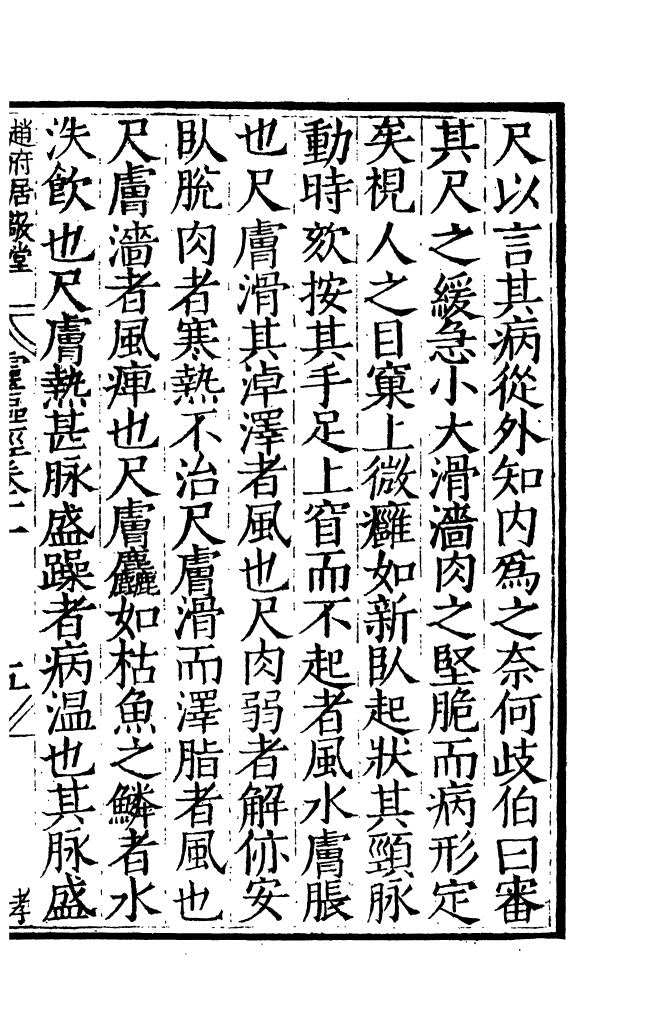 尺以言其病從外知内爲之奈何歧伯曰審
其尺之緩急小大滑濇肉之堅脆而病形定
矣視人之目窠上微癰如新臥起狀其頸脉
動時欬按其手足上窅而不起者風水膚脹
也尺膚滑其淖澤者風也尺肉弱者解㑊安
臥脫肉者寒熱不治尺膚滑而澤脂者風也
尺膚濇者風痺也尺膚麤如枯魚之鱗者水
泆飲也尺膚熱甚脉盛躁者病温也其脉盛
趙府居敬堂 靈樞經卷二 五 孝